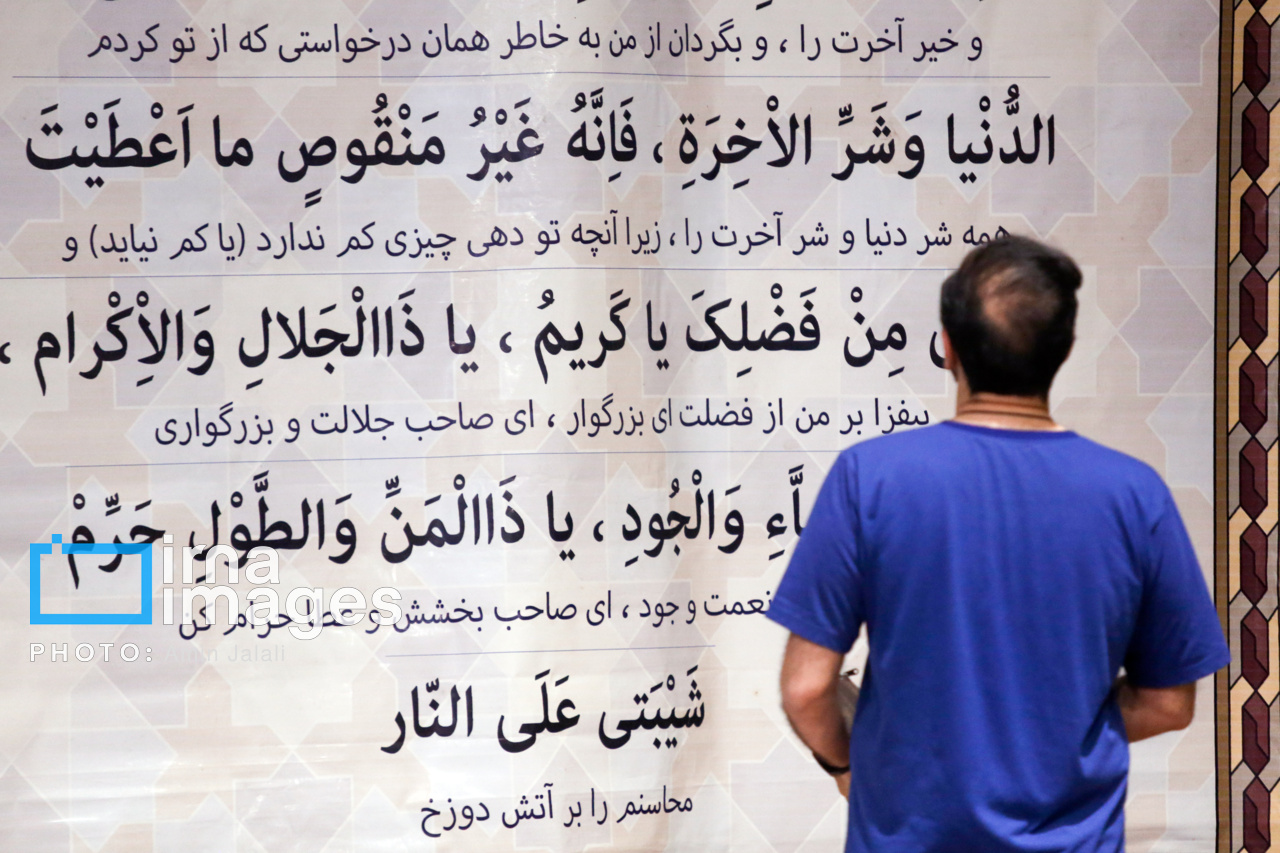 و خیر آخرت را ، و بگردان از من به خاطر همان درخواستی که از تو کردم
الدُّنْیا وَشَرِّ الاْخِرَةِ ، فَاِنَّهُ غَیْرُ مَنْقُوصٍ ما اَعْطَیْتَ
همه شر دنیا و شر آخرت را ، زیرا آنچه تو دهی چیزی کم ندارد (یا کم نیاید) و
مِنْ فَضْلِکَ یا کَریمُ ، یا ذَاالْجَلالِ وَالاِْکْرام ،
بیفزا بر من از فضلت ای بزرگوار ، ای صاحب جلالت و بزرگواری
وَالْجُودِ ، یا ذَاالْمَنِّ وَالطَّوْلِ حَرِّمْ
نعمت و جود ، ای صاحب بخشش و عطا حرام کن
شَیْبَتی عَلَی النّار
محاسنم را بر آتش دوزخ
irna
images
PHOTO: Amin Jalali